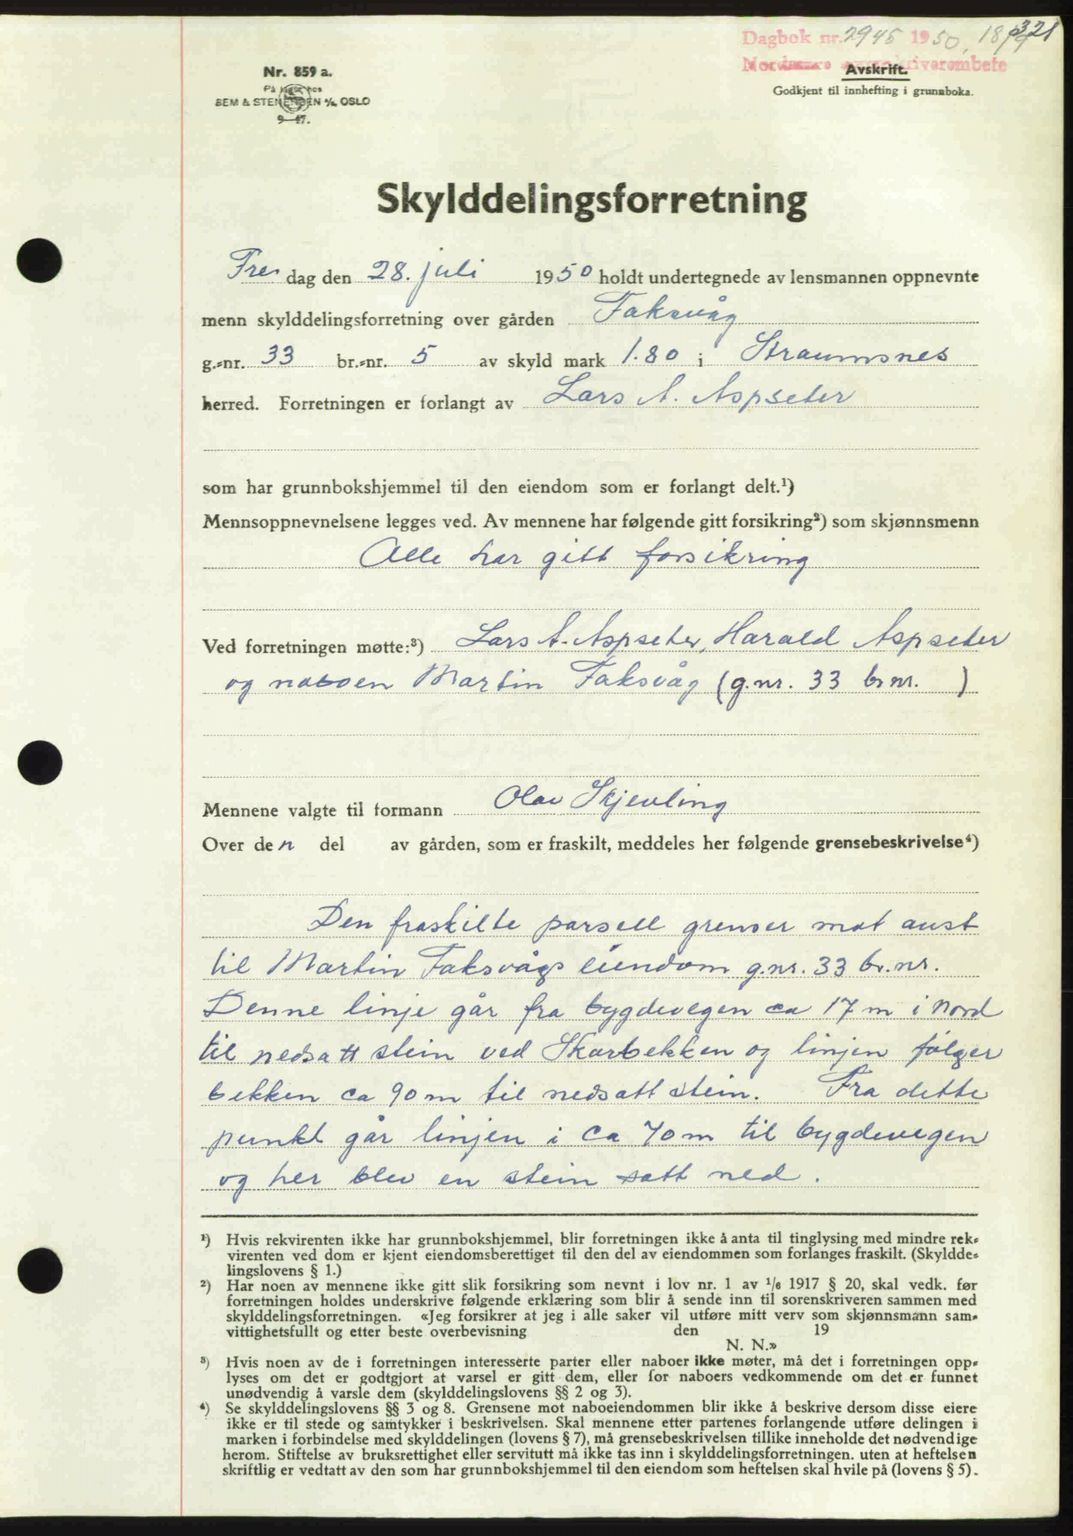 321
Dagbok nr. 2945 1950, 18/9
Nordmøre sorenskriverembete
Avskrift.
Godkjent til innhefting i grunnboka.
Nr. 859 a.
På lager hos
SEM & STENERSEN A/S, OSLO
9-47.
Skylddelingsforretning
Fredag den 28. juli 1950 holdt undertegnede av lensmannen oppnevnte
menn skylddelingsforretning over gården Faksvåg
g.-nr. 33 br.-nr. 5 av skyld mark 1.80 i Straumsnes
herred. Forretningen er forlangt av Lars A. Aspseter
som har grunnbokshjemmel til den eiendom som er forlangt delt.¹)
Mennsoppnevnelsene legges ved. Av mennene har følgende gitt forsikring²) som skjønnsmenn
Alle har gitt forsikring
Ved forretningen møtte:³) Lars A. Aspseter, Harald Aspseter
og naboen Martin Faksvåg (g.nr. 33 br.nr. )
Mennene valgte til formann Olav Skjevling
Over den del av gården, som er fraskilt, meddeles her følgende grensebeskrivelse⁴)
Den fraskilte parsell grenser mot aust
til Martin Faksvågs eiendom g.nr. 33 br.nr.
Denne linje går fra bygdevegen ca 17 m i nord
til nedsatt stein ved Skarbekken og linjen følger
bekken ca 90 m til nedsatt stein. Fra dette
punkt går linjen i ca 70 m til bygdevegen
og her blev en stein satt ned.
¹) Hvis rekvirenten ikke har grunnbokshjemmel, blir forretningen ikke å anta til tinglysing med mindre rek-
virenten ved dom er kjent eiendomsberettiget til den del av eiendommen som forlanges fraskilt. (Skyldde-
lingslovens § 1.)
²) Har noen av mennene ikke gitt slik forsikring som nevnt i lov nr. 1 av 1/6 1917 § 20, skal vedk. før
forretningen holdes underskrive følgende erklæring som blir å sende inn til sorenskriveren sammen med
skylddelingsforretningen. «Jeg forsikrer at jeg i alle saker vil utføre mitt verv som skjønnsmann sam-
vittighetsfullt og etter beste overbevisning den 19
N. N.»
³) Hvis noen av de i forretningen interesserte parter eller naboer ikke møter, må det i forretningen opp-
lyses om det er godtgjort at varsel er gitt dem, eller for naboers vedkommende om det er funnet
unødvendig å varsle dem (skylddelingslovens §§ 2 og 3).
⁴) Se skylddelingslovens §§ 3 og 8. Grensene mot naboeiendommen blir ikke å beskrive dersom disse eiere
ikke er til stede og samtykker i beskrivelsen. Skal mennene etter partenes forlangende utføre delingen i
marken i forbindelse med skylddelingen (lovens § 7), må grensebeskrivelsen tillike inneholde det nødvendige
herom. Stiftelse av bruksrettighet eller servitutt må ikke tas inn i skylddelingsforretningen. uten at heftelsen
skriftlig er vedtatt av den som har grunnbokshjemmel til den eiendom som heftelsen skal hvile på (lovens § 5).